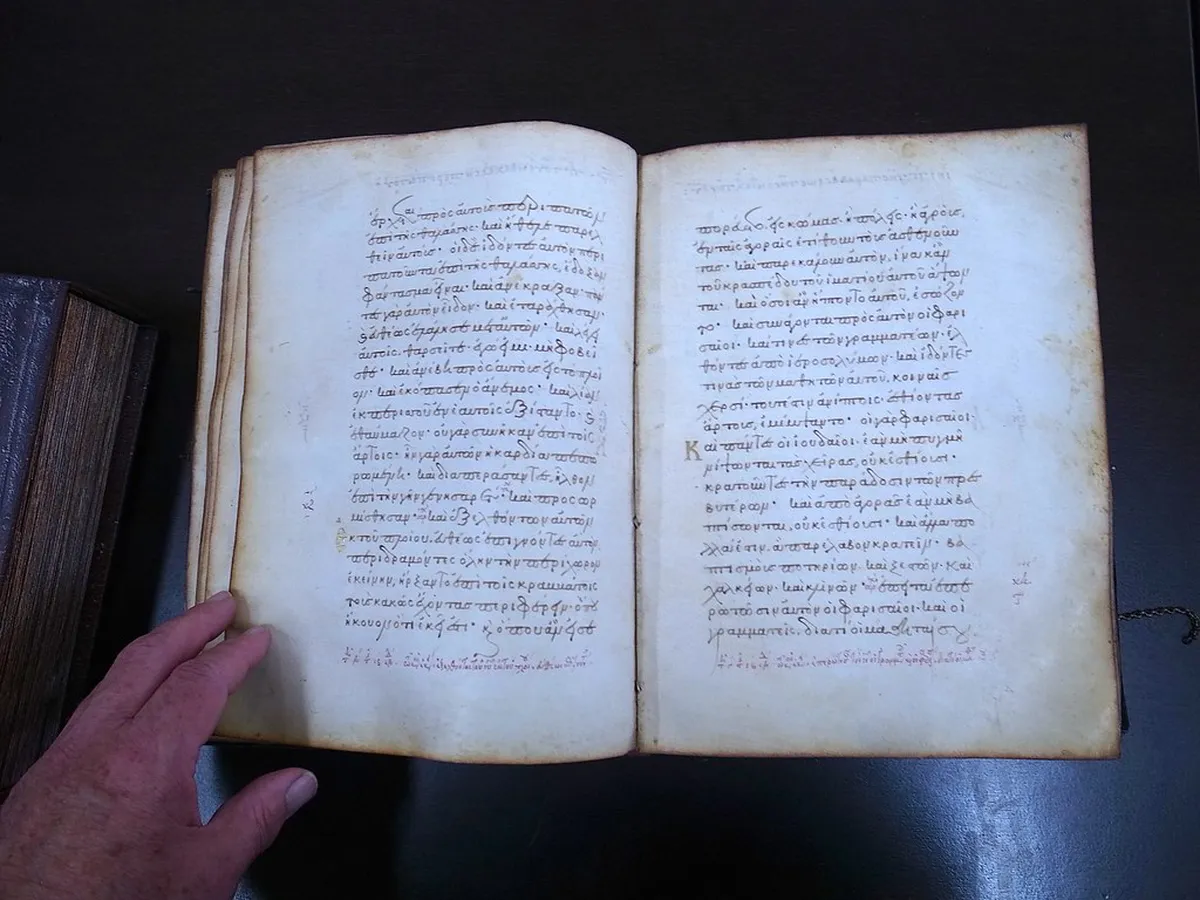 ἔρχεται πρὸς αὐτοὺς περιπατῶν
ἐπὶ τῆς θαλάσσης· καὶ ἤθελε παρελ
θεῖν αὐτούς· οἱ δὲ ἰδόντες αὐτὸν περι
πατοῦντα ἐπὶ τῆς θαλάσσης, ἔδοξαν
φάντασμα εἶναι· καὶ ἀνέκραξαν· πάν
τες γὰρ αὐτὸν εἶδον· καὶ ἐταράχθησαν·
καὶ εὐθέως ἐλάλησε μετ' αὐτῶν· καὶ λέγει
αὐτοῖς· θαρσεῖτε· ἐγώ εἰμι· μὴ φοβεῖ
σθε· καὶ ἀνέβη πρὸς αὐτοὺς εἰς τὸ πλοῖ
ον· καὶ ἐκόπασεν ὁ ἄνεμος· καὶ λίαν
ἐκ περισσοῦ ἐν ἑαυτοῖς ἐξίσταντο· καὶ
ἐθαύμαζον· οὐ γὰρ συνῆκαν ἐπὶ τοῖς
ἄρτοις· ἦν γὰρ αὐτῶν ἡ καρδία πεπω
ρωμένη· καὶ διαπεράσαντες, ἦλθον
ἐπὶ τὴν γῆν γενησαρέτ· καὶ προσωρ
μίσθησαν· καὶ ἐξελθόντων αὐτῶν
ἐκ τοῦ πλοίου, εὐθέως ἐπιγνόντες αὐτὸν
περιδραμόντες ὅλην τὴν περίχωρον
ἐκείνην, ἤρξαντο ἐπὶ τοῖς κραμμάτοις
τοὺς κακῶς ἔχοντας περιφέρειν· ὅπου
ἤκουον ὅτι ἐκεῖ ἐστι· καὶ ὅπου ἂν εἰσε
πορεύετο εἰς κώμας· ἢ πόλεις· ἢ ἀγρούς,
ἐν ταῖς ἀγοραῖς ἐτίθουν τοὺς ἀσθενοῦν
τας· καὶ παρεκάλουν αὐτόν, ἵνα κἂν
τοῦ κρασπέδου τοῦ ἱματίου αὐτοῦ ἅψων
ται· καὶ ὅσοι ἂν ἥπτοντο αὐτοῦ, ἐσώζον
το· καὶ συνάγονται πρὸς αὐτὸν οἱ φαρι
σαῖοι· καί τινες τῶν γραμματέων· ἐλ
θόντες ἀπὸ ἱεροσολύμων· καὶ ἰδόντες
τινὰς τῶν μαθητῶν αὐτοῦ, κοιναῖς
χερσί· τουτέστιν ἀνίπτοις· ἐσθίοντας
ἄρτους, ἐμέμψαντο· οἱ γὰρ φαρισαῖοι·
Καὶ πάντες οἱ ἰουδαῖοι· ἐὰν μὴ πυγμῇ
νίψωνται τὰς χεῖρας, οὐκ ἐσθίουσι·
κρατοῦντες τὴν παράδοσιν τῶν πρεσ
βυτέρων· καὶ ἀπὸ ἀγορᾶς ἐὰν μὴ βα
πτίσωνται, οὐκ ἐσθίουσι· καὶ ἄλλα πο
λλά ἐστιν, ἃ παρέλαβον κρατεῖν· βα
πτισμοὺς ποτηρίων· καὶ ξεστῶν· καὶ
χαλκίων· καὶ κλινῶν· ἔπειτα ἐπε
ρωτῶσιν αὐτὸν οἱ φαρισαῖοι· καὶ οἱ
γραμματεῖς, διατί οἱ μαθηταί σου